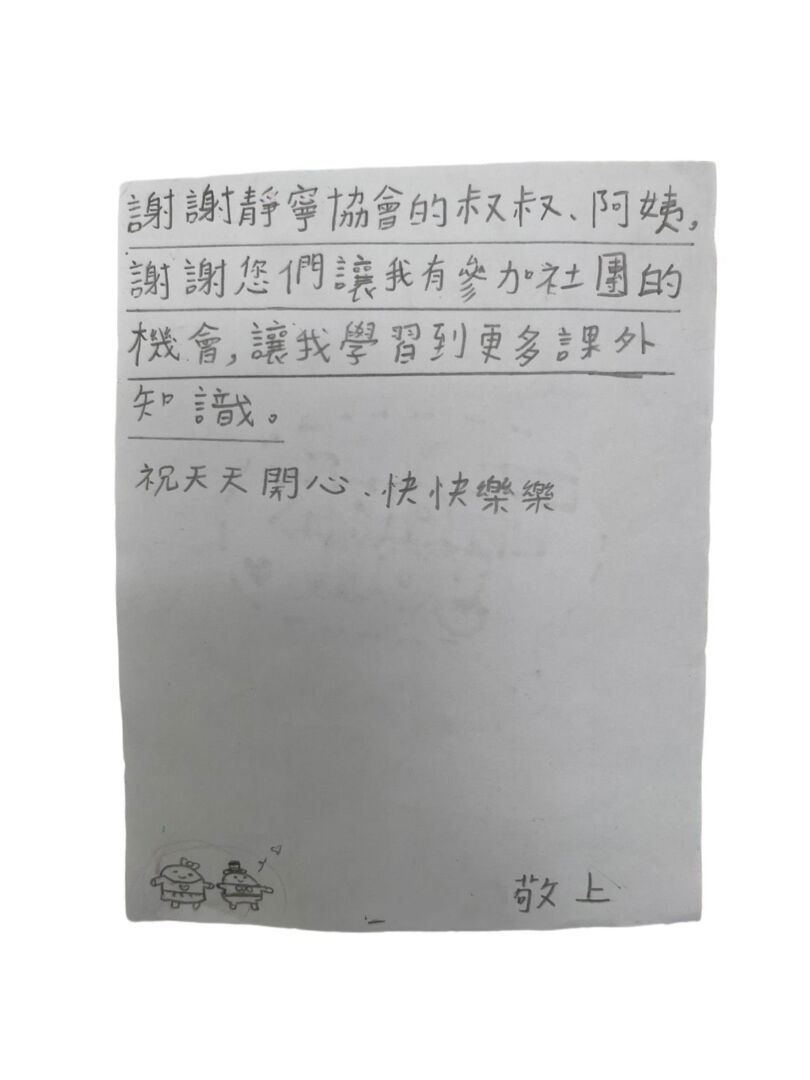 謝謝靜寧協會的叔叔、阿姨,
謝謝您們讓我有參加社團的
機會,讓我學習到更多課外
知識。
祝天天開心、快快樂樂
敬上